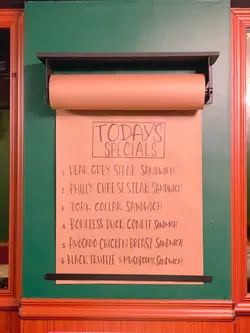 TODAYS
SPECIALS
1. DEAR GREY STEAK SANDWICH
2. PHILLY CHEESE STEAK SANDWICH
3. PORK COLLAR SANDWICH
4. BONELESS DUCK CONFIT SANDWICH
5. AVOCADO CHICKEN BREAST SANDWICH
6. BLACK TRUFFLE & MUSHROOMS SANDWICH